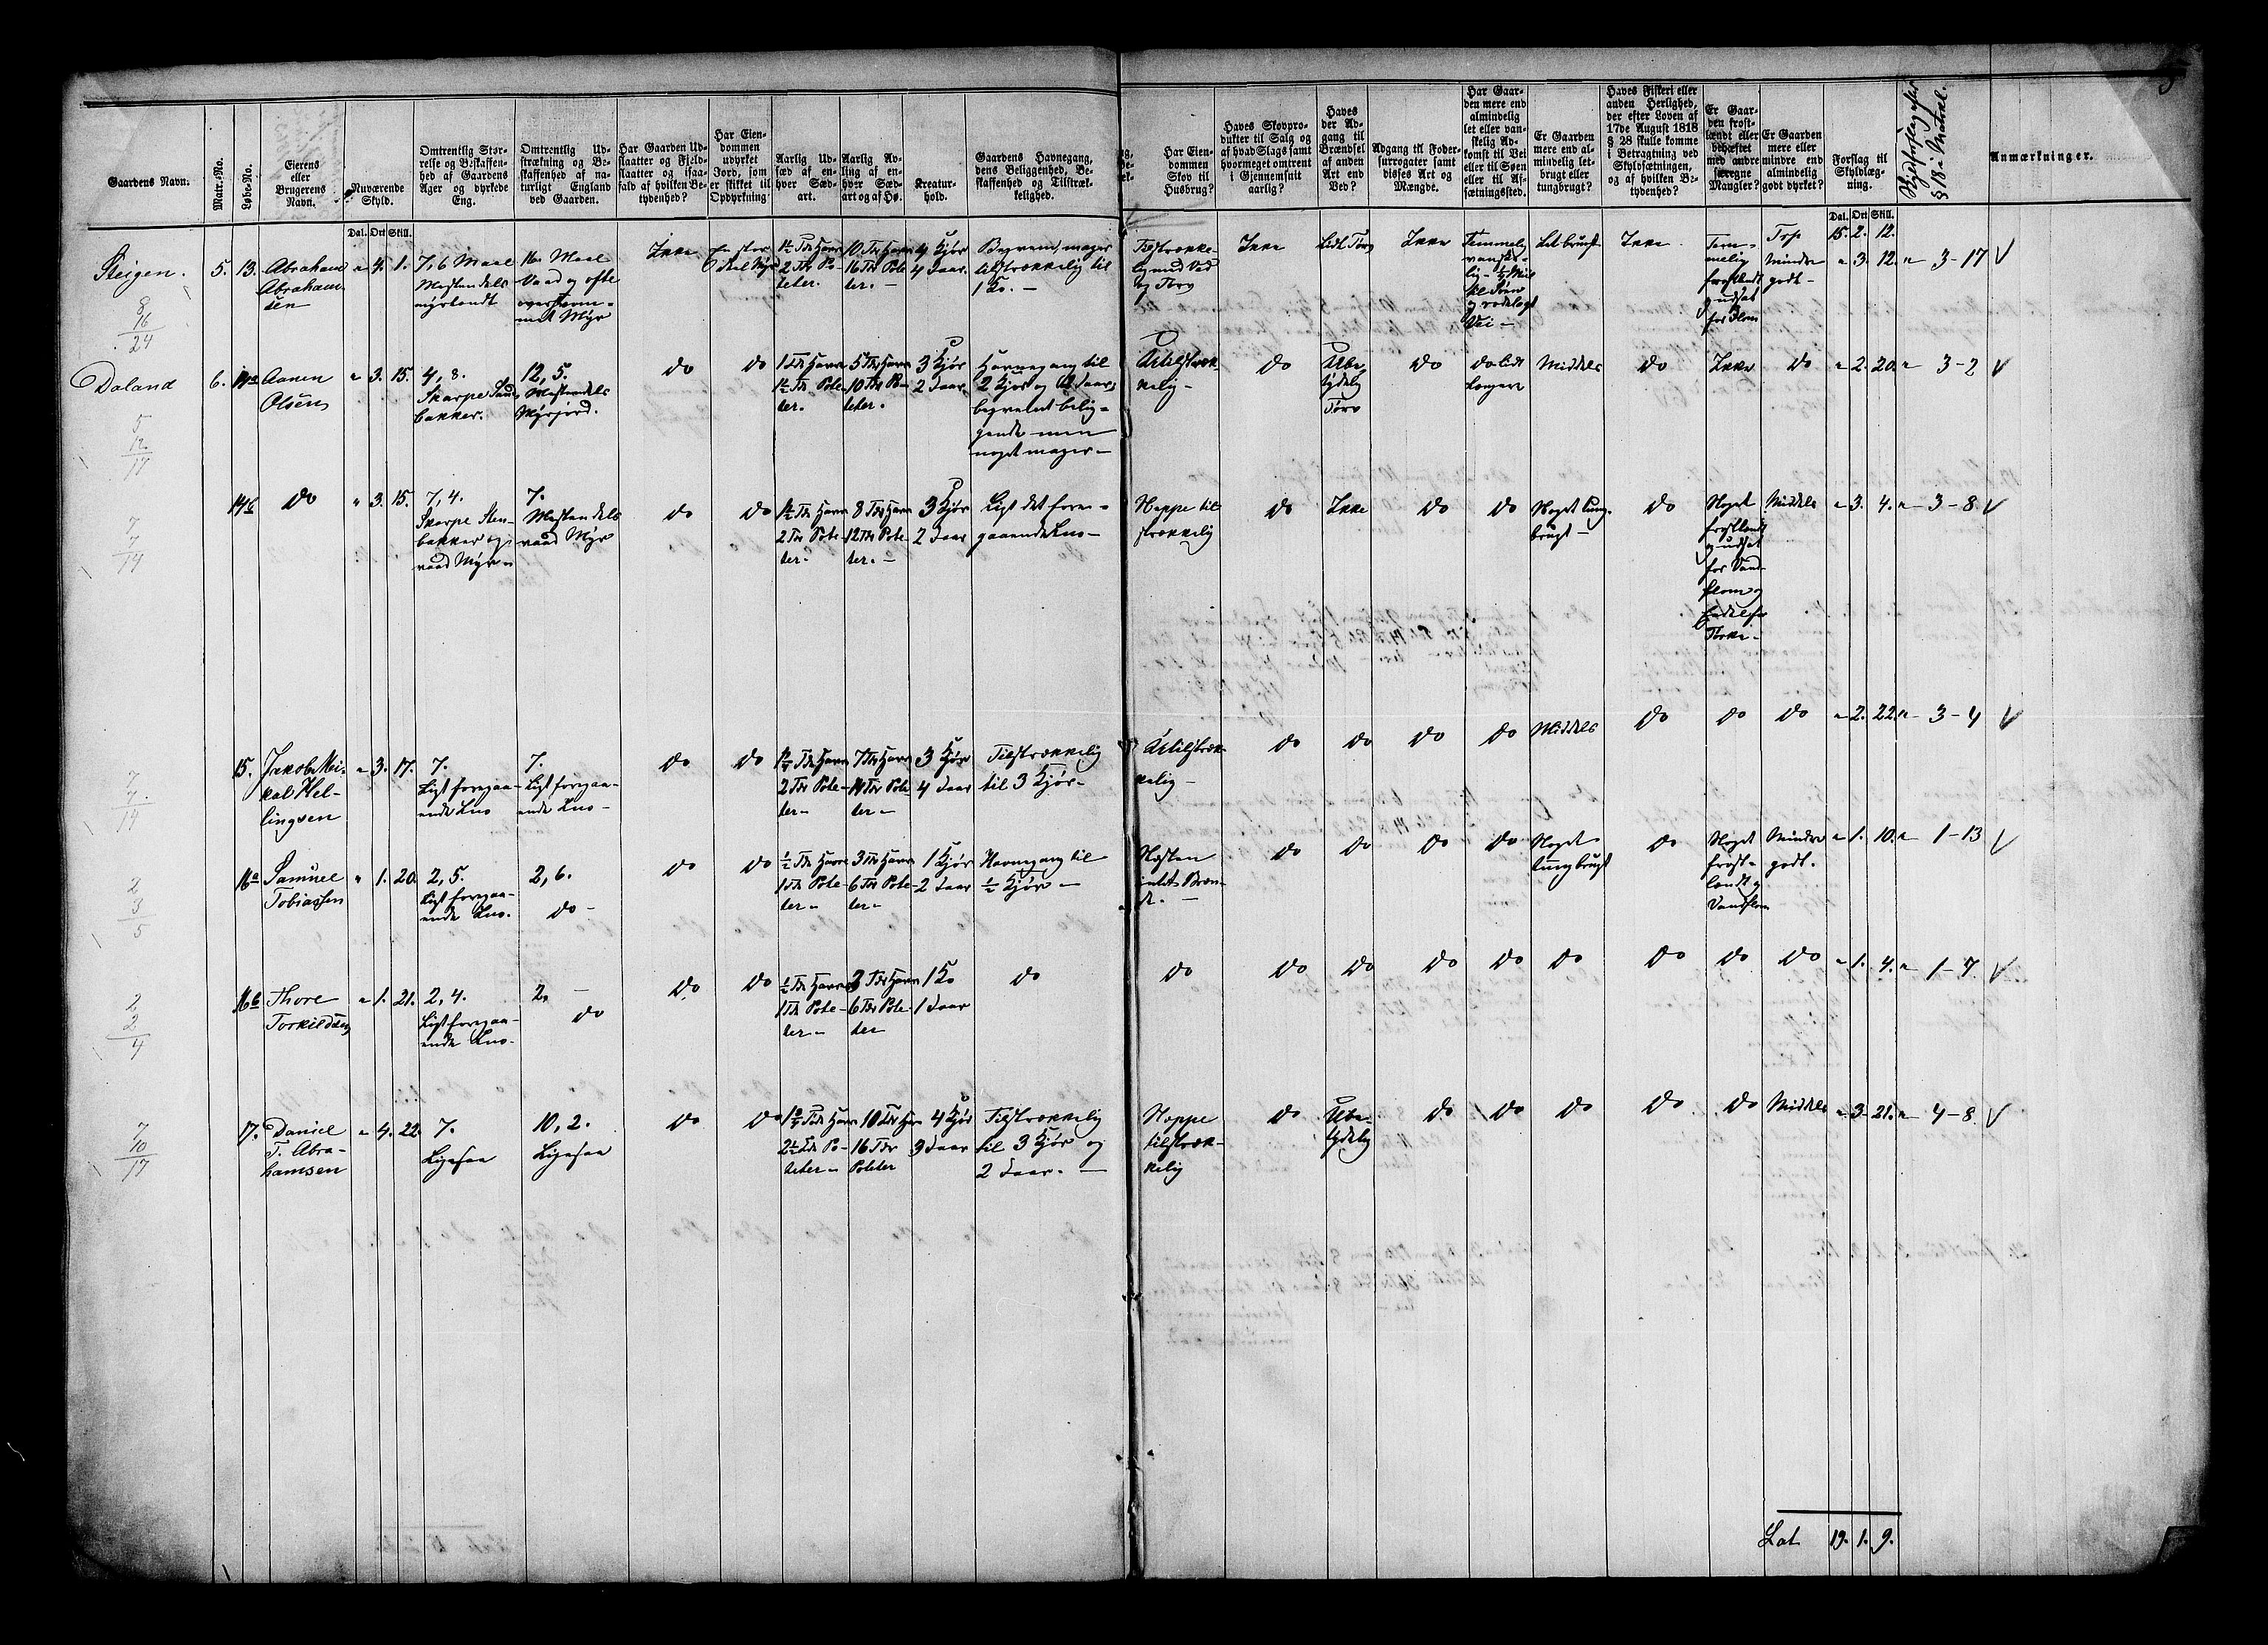 Gaardens Navn.
Matr.-No.
Løbe-No.
Eierens
eller
Brugerens
Navn.
Nuværende
Skyld.
Dal. Ort Skill.
Omtrentlig Stør-
relse og Beskaffen-
hed af Gaardens
Ager og dyrkede
Eng.
Omtrentlig Ud-
strækning og Be-
skaffenhed af na-
turligt England
ved Gaarden.
Har Gaarden Ud-
slaatter og Fjeld-
slaatter og isaa-
fald af hvilken Be-
tydenhed?
Har Eien-
dommen
udyrket
Jord, som
er skikket til
Opdyrkning
Aarlig Ud-
sæd af en-
hver Sæd-
art.
Aarlig Av-
ling af en-
hver Sæd-
art og af Hø.
Kreatur-
hold.
Gaardens Havnegang,
dens Beliggenhed, Be-
skaffenhed og Tilstræk-
kelighed.
Har Eien-
dommen
Skov til
Husbrug?
Haves Skovpro-
dukter til Salg og
af hvad Slags samt
hvormeget omtrent
i Gjennemsnit
aarlig?
Haves
der Ad-
gang til
Brændsel
af anden
Art end
Ved?
Adgang til Foder-
surrogater samt
disses Art og
Mængde.
Har Gaar-
den mere end
almindelig
let eller van-
skelig Ad-
komst til Vei
eller til Søen
eller til Af-
sætningssted.
Er Gaarden
mere end al-
mindelig let-
brugt eller
tungbrugt?
Haves Fiskeri eller
anden Herlighed,
der efter Loven af
17de August 1818
§ 28 skulle komme
i Betragtning ved
Skyldsætningen,
og af hvilken Be-
tydenhed?
Er Gaar-
den frost-
lændt eller
behæftet
med andre
særegne
Mangler?
Er Gaarden
mere eller
mindre end
almindelig
godt dyrket?
Forslag til
Skyldlæg-
ning.
Dal. Ort Skill.
§ 18 i Matrl.
Anmærkninger.
Trsp 15. 2. 12.
Steigen. 5. 13. Abraham
Abraham-
sen
" 4. 1.
7,6 Maal
Mestendels
myrlændt
16 Maal
Vaad og ofte
oversvøm-
met Myr
Ikke
2 Tdr Po-
teter.
10 Tdr Havre
16 Tdr Pote-
ter. —
4 Kjør
4 Saar.
Beqvem mager
tilstrækkelig til
1 Ko. —
Tilstrække-
lig med Ved
og Torv
Ikke
Lidt Torv
Ikke
Temmelig
vanske-
lig
Vei —
Let brugt
Ikke
Tem-
melig
frostlændt
og udsat
for Flom
mindre
godt —
" 3. 12. " 3-17 V
8
16
24
Daland 6. 14a Aanen
Olsen
" 3. 15.
4,8.
Skarpe Sand-
bakker.
12,5.
Mestendels
Myrjord.
do
do
1 Td Havre
1½ Td Pote-
ter.
5 Tdr Havre
10 Tdr Po-
teter.
3 Kjør
2 Saar
Havnegang til
2 Kjør og 2 Saar,
beqvemt belig-
gende men
noget mager —
Utilstræk-
kelig —
do
Ube-
tydelig
Torv
do
do lidt
længere
Middels
do
Ikke
do
" 2. 20. " 3-2 V
5
12
17
14b do " 3. 15.
7,4.
Skarpe Sten-
bakker og
vaad Myr "
7.
Mestendels
vaad Myr
do
do
1½ Td Havre
2 Tdr Pote-
ter.
8 Tdr Havre
12 Tdr Pote-
ter. —
3 Kjør
2 Saar
Ligt det fore-
gaaende Lno —
Neppe til-
strækkelig
do
Ikke
do
do
Noget tung-
brugt —
do
Noget
frostlændt
og udsat
for Vand-
flom og
Tørke —
Middels
" 3. 4. " 3-8 V
7
7
14
15. Jakob Mi-
kal Hel-
lingsen
" 3. 17.
7.
Ligt foregaa-
ende Lno
7.
Ligt foregaa-
ende Lno —
do
do
2 Tdr Pote-
ter —
7 Tdr Havre
14 Tdr Pote-
ter —
3 Kjør
4 Saar
Tilstrækkelig
til 3 Kjør —
Utilstræk-
kelig —
do
do
do
do
Middels
do
do
do
" 2. 22. " 3-4 V
7
7
14
16a Samuel
Tobiassen
" 1. 20.
2,5.
Ligt foregaa-
ende Lno.
2,6.
do —
do
do
½ Td Havre
1 Td Pote-
ter —
3 Tdr Havre
6 Tdr Pote-
ter —
1 Kjør
2 Saar
Havnegang til
½ Kjør —
Næsten
intet Bræn-
de. —
do
do
do
do
Noget
tungbrugt
do
Noget
frost-
lændt og
Vandflom
Mindre
godt.
" 1. 10. " 1-13 V
2
3
5
16b Thore
Torkildsen
" 1. 21.
2,4.
Ligt foregaa-
ende Lno.
2. —
do
do
do
½ Td Havre
1 Td Pote-
ter —
3 Tdr Havre
6 Tdr Pote-
ter
1 Ko
1 Saar
do
do
do
do
do
do
do
do
do
do
" 1. 4. " 1-7 V
2
2
4
17. Daniel
T. Abra-
hamsen
" 4. 22.
7.
Ligesaa
10,2.
Ligesaa
do
do
2½ Tdr Po-
teter —
10 Tdr Havre
16 Tdr
Poteter
4 Kjør
3 Saar
Tilstrækkelig
til 3 Kjør og
2 Saar. —
Neppe
tilstræk-
kelig
do
Ube-
tydelig
do
do
do
do
do
Middels
" 3. 21. " 4-8 V
7
10
17
Lat 19. 1. 9.